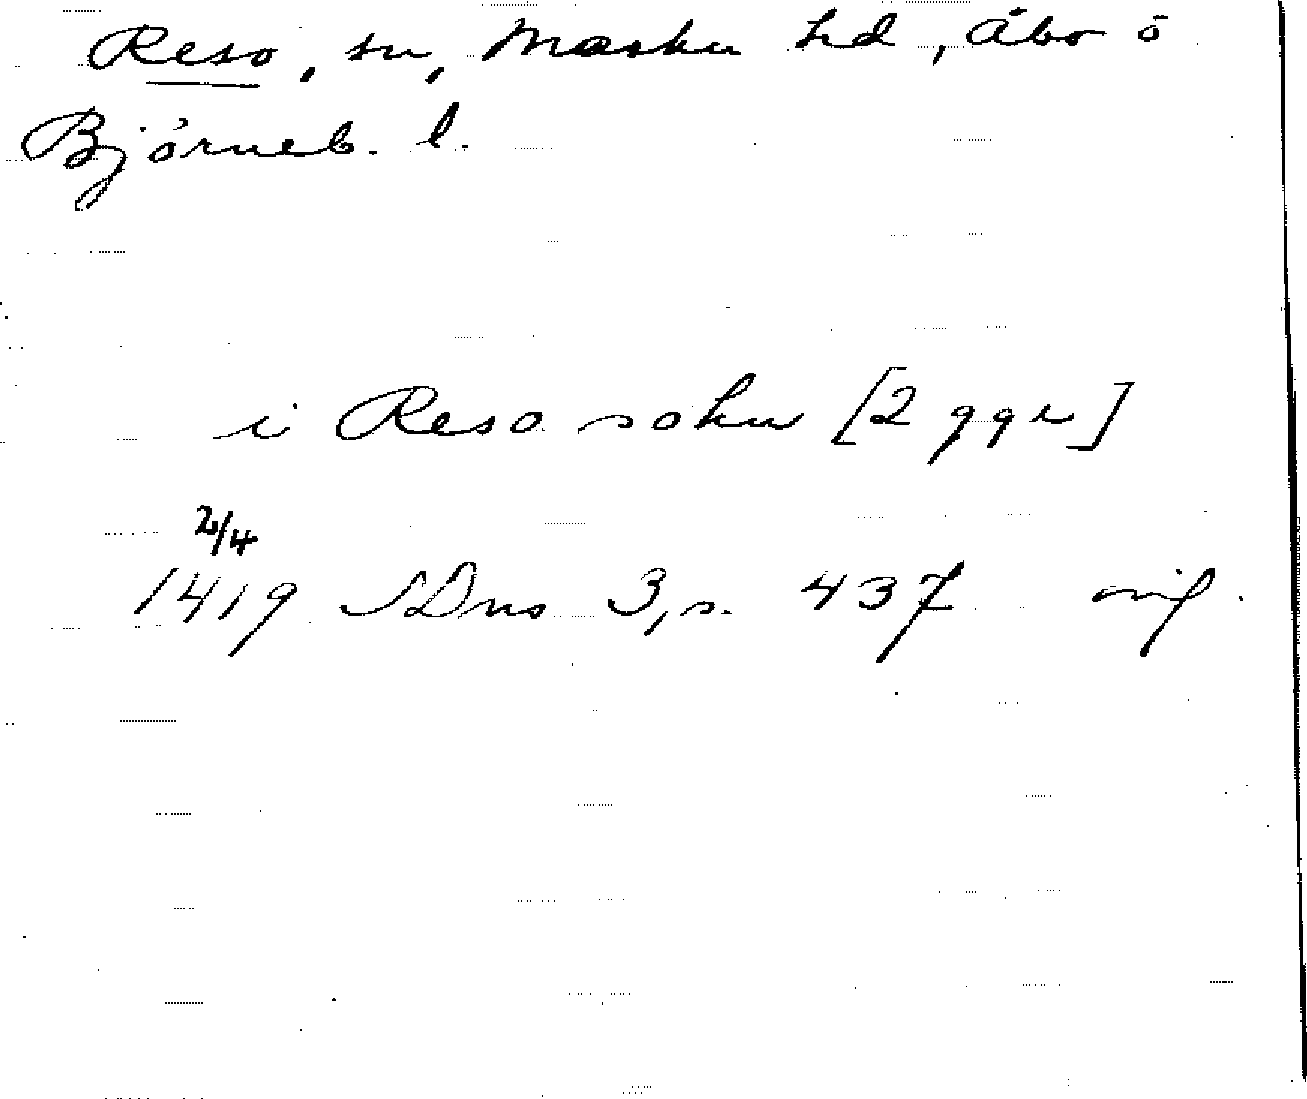 Reso, sn, Masku hd, Åbo o
Björneb. l.
i Reso sokn [2 ggr]
2/4
1419 SDns 3, s. 437 orig.